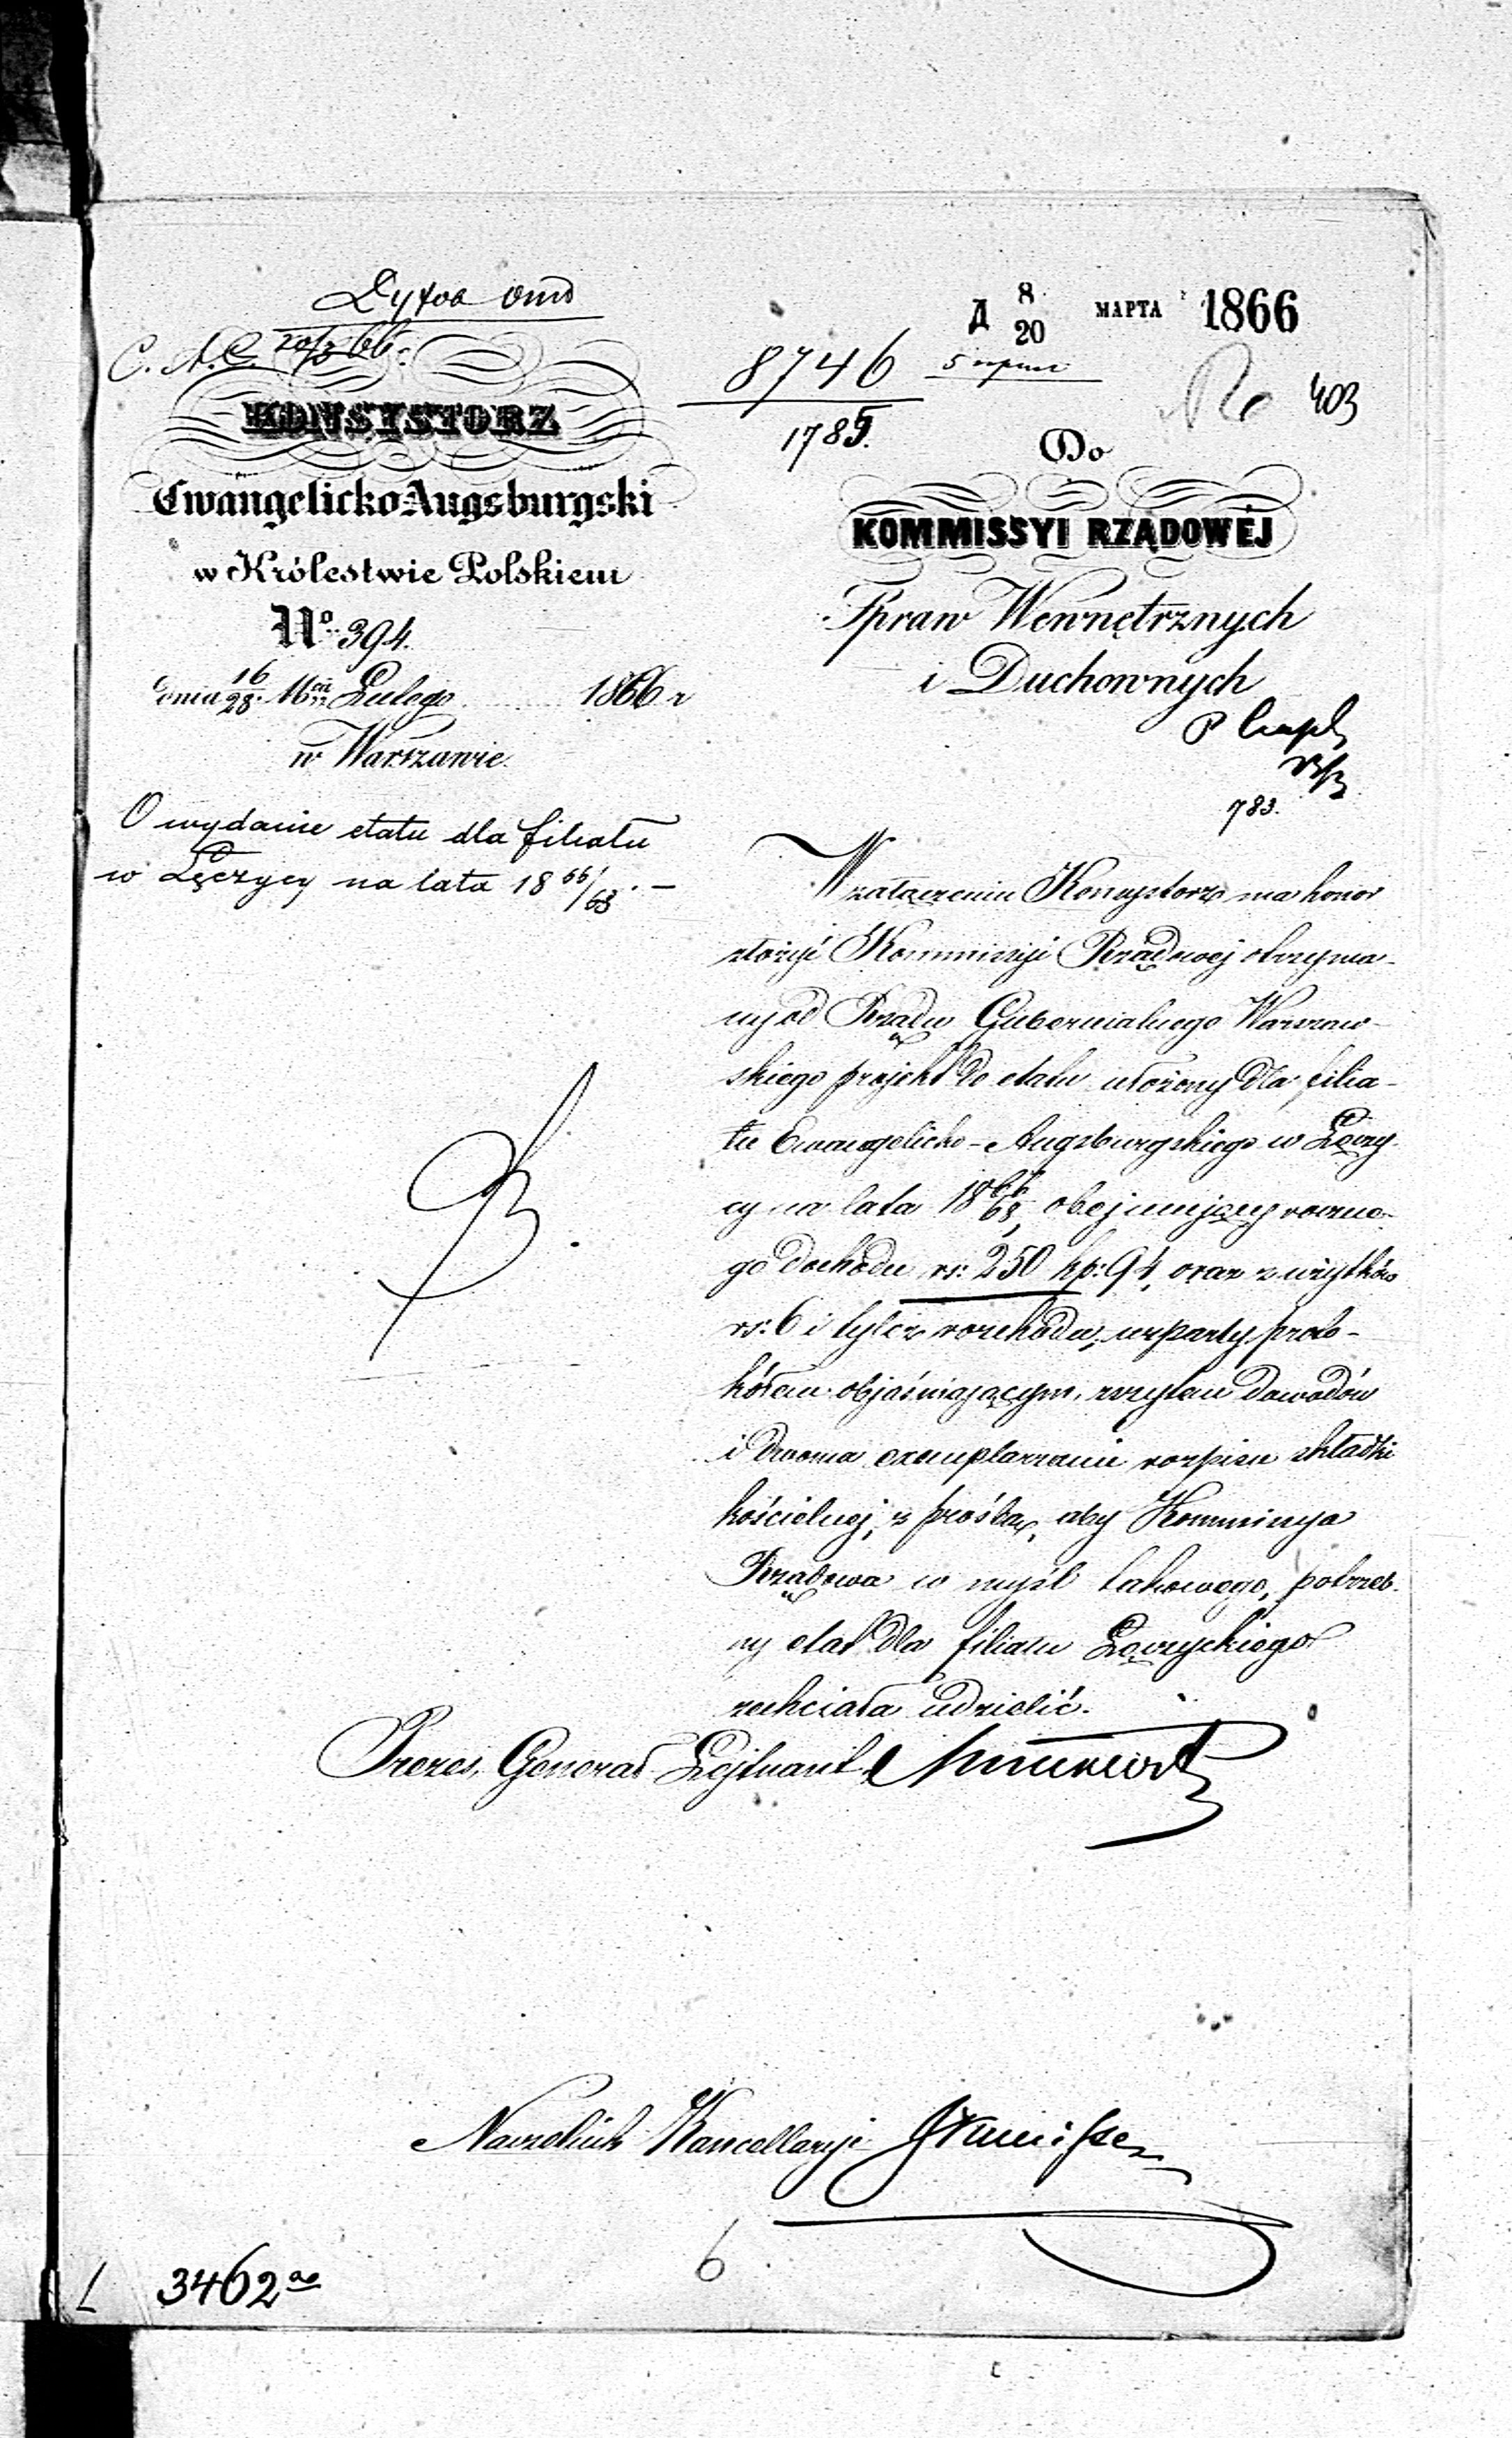 C. A. C. 20/3 66.
KONSYSTORZ
Ewangelicko Augsburgski
w Królestwie Polskiem
No. 394.
dnia 16/28 Lutego 1866 r
w Warszawie.
O wydanie etatu dla filiału
w Łęczycy na lata 18 66/68. —
Д 8/20 МАРТА 1866
8746
1785.
403
Do
KOMMISSYI RZĄDOWÉJ
Spraw Wewnętrznych
i Duchownych
783.
W załączeniu Konsystorz ma honor
złożyć Kommissyi Rządowej otrzyma-
ny od Rządu Gubernialnego Warszaw-
skiego projekt do etatu ułożony dla filia-
łu Ewangelicko-Augsburgskiego w Łęczy-
cy na lata 18 66/68, obejmujący roczne-
go dochodu rs: 250 kp: 94, oraz z użytków
rs: 6 i tyleż rozchodu, wsparty proto-
kółem objaśniającym, zszytem dowodów
i dwoma exemplarzami rozpisu składki
kościelnej, z prośbą, aby Kommissya
Rządowa w myśl takowego, potrzeb-
ny etat dla filiału Łęczyckiego
zechciała udzielić.
Prezes, Generał Lejtnant
Naczelnik Kancellaryi
6
3462